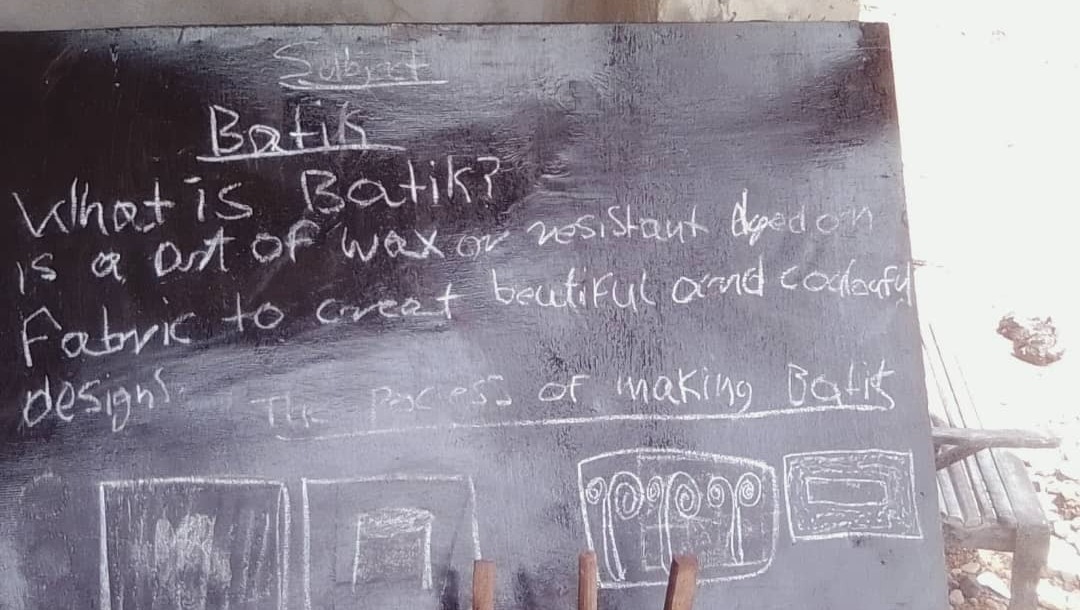 Subject
Batik
What is Batik?
is a art of wax or resistant dyed on
Fabric to creat beutiful and coulouful
designs.
The Pocess of making Batik